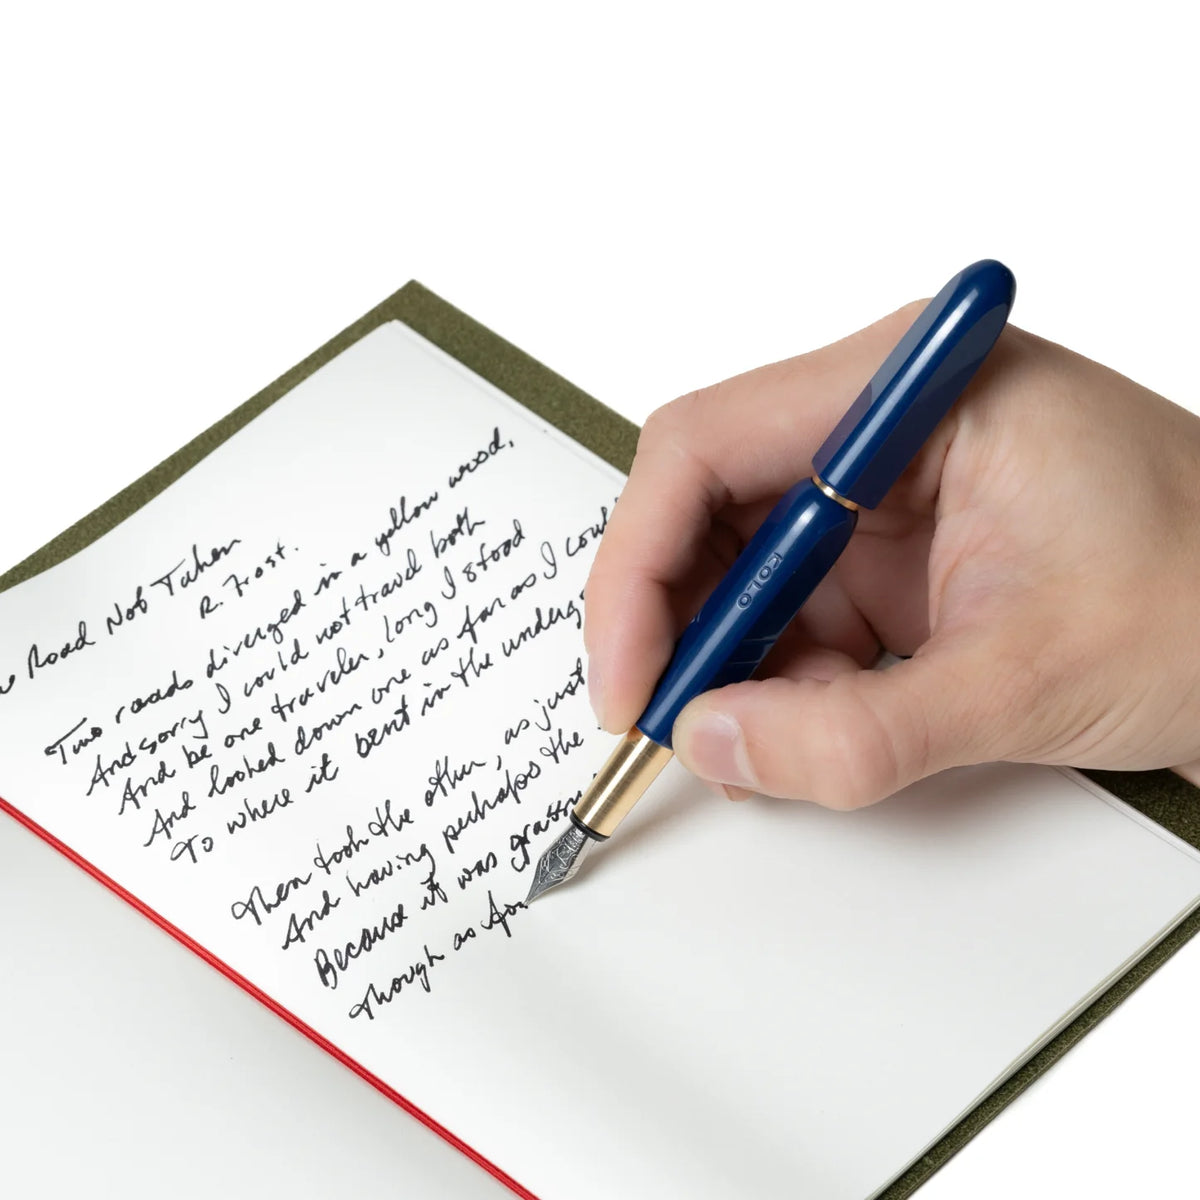 Road Not Taken
R. Frost.
Two roads diverged in a yellow wood,
And sorry I could not travel both
And be one traveler, long I stood
And looked down one as far as I coul
To where it bent in the underg
Then took the other, as just
And having perhaps the
Because it was grassy
Though as for
KOLO